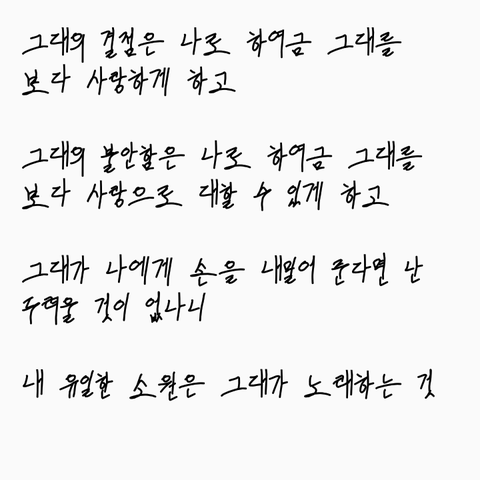 그대의 결점은 나로 하여금 그대를
보다 사랑하게 하고
그대의 불안함은 나로 하여금 그대를
보다 사랑으로 대할 수 있게 하고
그대가 나에게 손을 내밀어 준다면 난
두려울 것이 없나니
내 유일한 소원은 그대가 노래하는 것